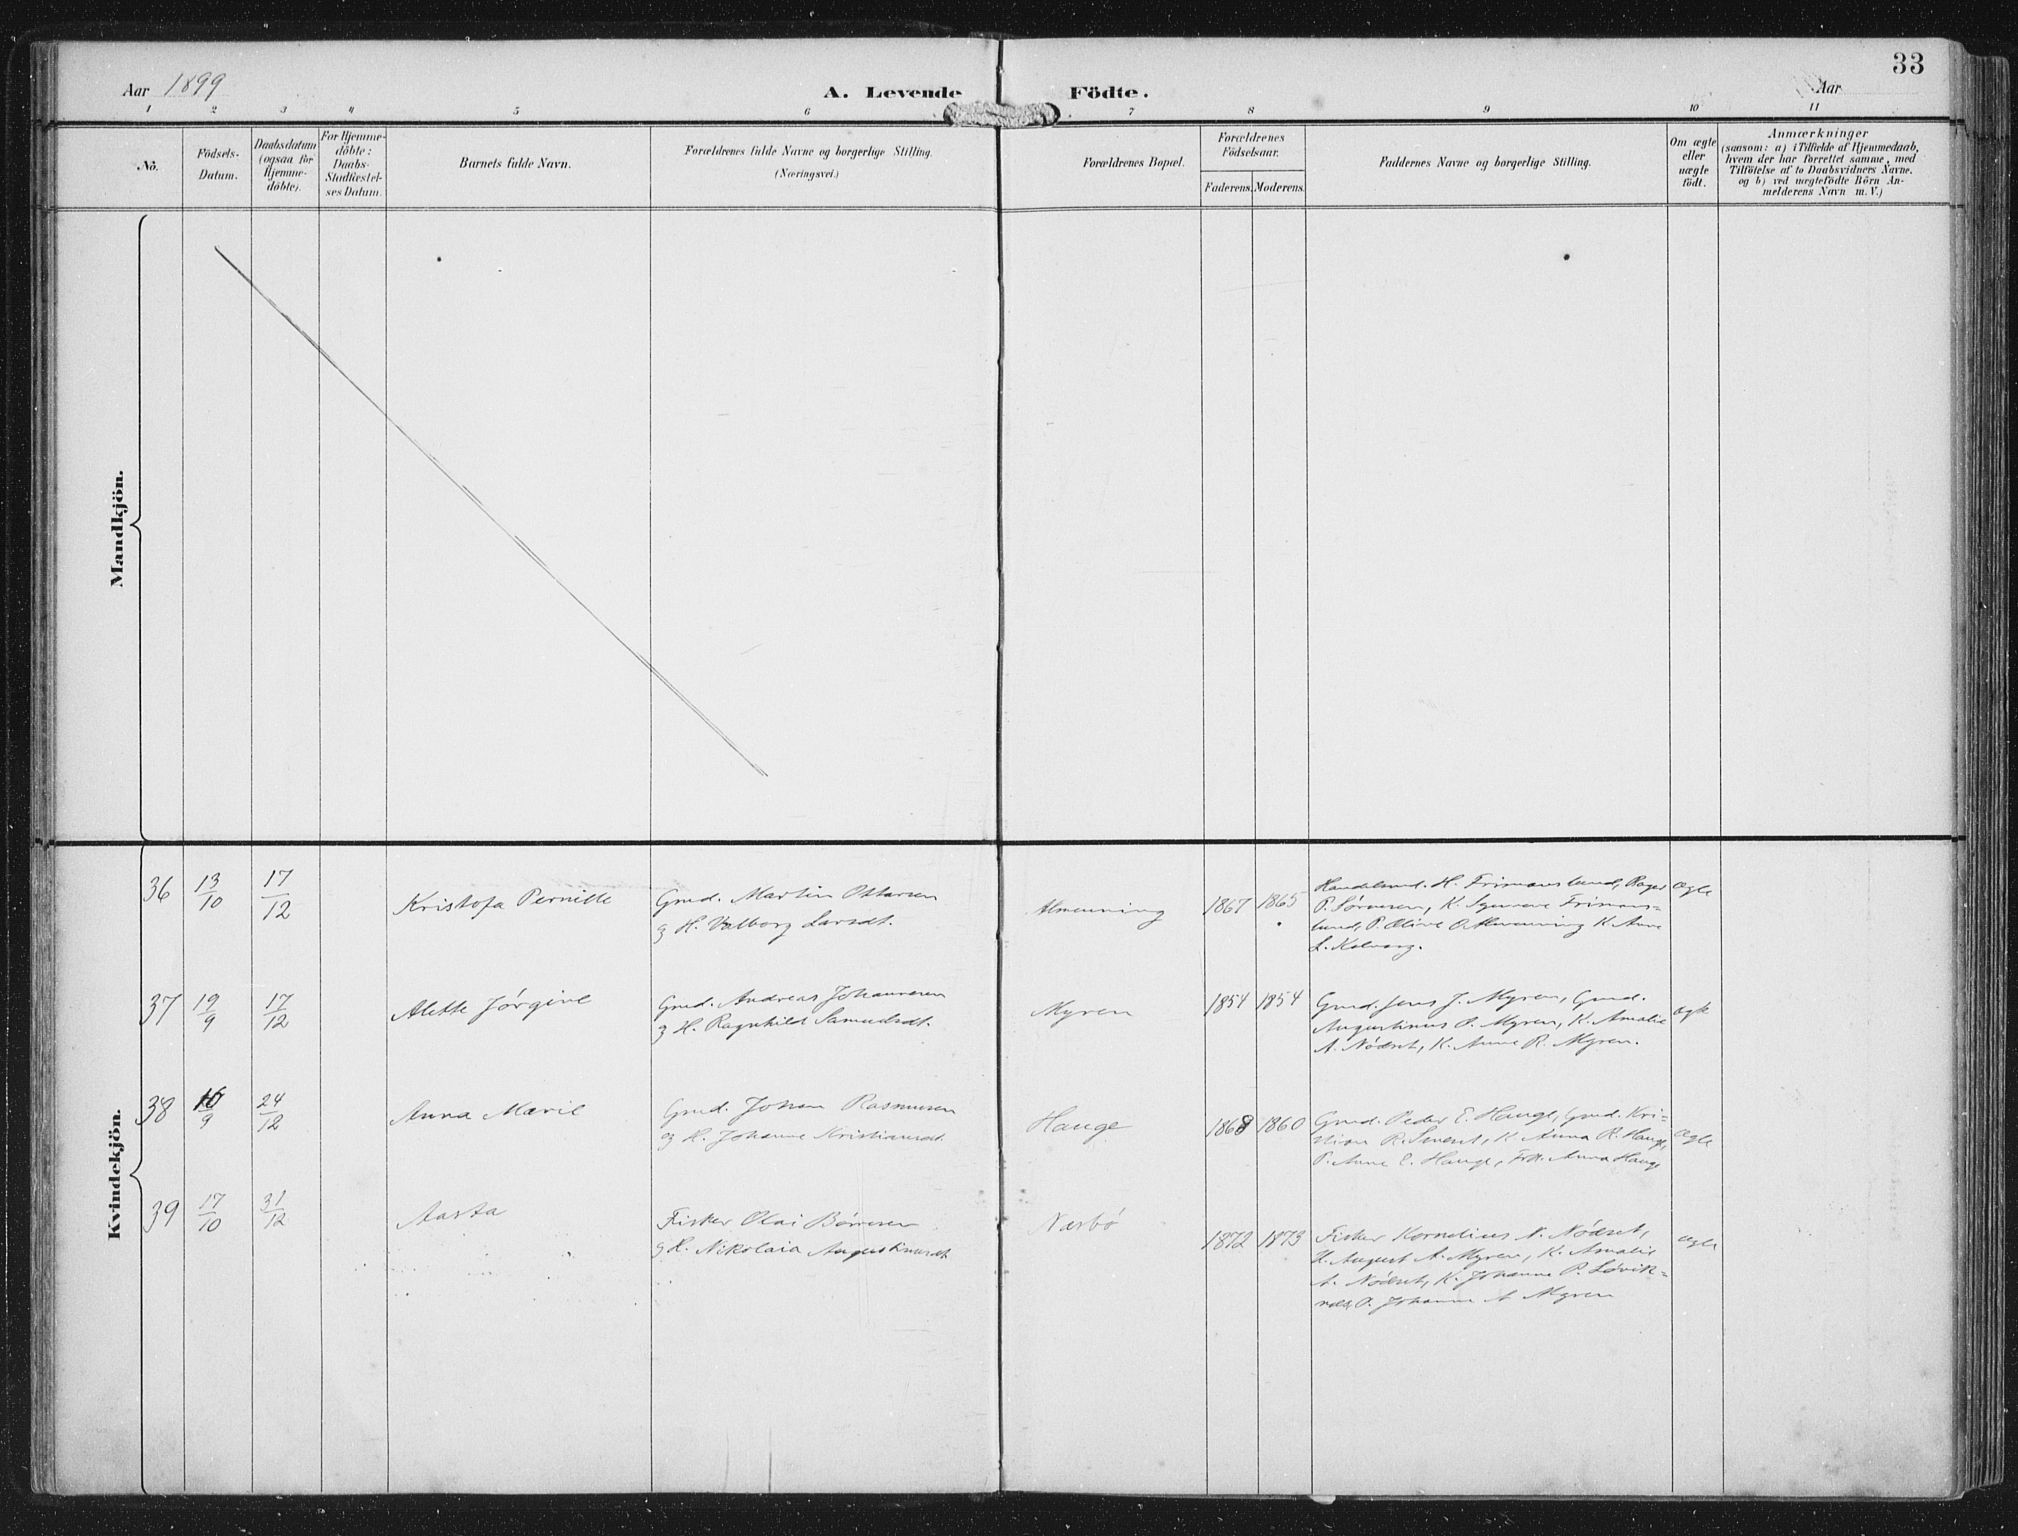 33
Aar 1899
A. Levende Födte.
Aar
1 2 3 4 5 6 7 8 9 10 11
No.
Födsels-
Datum.
Daabsdatum
(ogsaa for
Hjemme-
döbte).
For Hjemme-
döbte:
Daabs-
Stadfæstel-
ses Datum.
Barnets fulde Navn.
Forældrenes fulde Navne og borgerlige Stilling.
(Næringsvei.)
Forældrenes Bopæl.
Forældrenes
Födselsaar.
Faderens. Moderens.
Faddernes Navne og borgerlige Stilling.
Om ægte
eller
uægte
født.
Anmærkninger
(saasom: a) i Tilfælde af Hjemmedaab,
hvem der har forrettet samme, med
Tilføielse af to Daabsvidners Navne.
og b) ved uægtefödte Börn An-
melderens Navn m. V.)
Mandkjön.
Kvindekjön.
36 13/10 17/12 Kristofa Pernille
Gmd. Martin Ottersen
og H. Valborg Larsdt.
Almenning 1867 1865
Handelsmd. H. Frimanslund,
P. Sørensen, K. Synneve Frimans-
lund, P. Oline Almenning K. Anne
L. Kalvaag.
Ægte
37 19/9 17/12 Alette Jørgine
Gmd. Andreas Johannesen
og H. Ragnhild Samuelsdt.
Myren 1854 1854
Gmd. Jens J. Myren, Gmd.
Augustinus P. Myren, K. Amalie
A. Nødset, K. Anne R. Myren.
ægte
38 16/9 24/12 Anna Marie
Gmd. Johan Rasmusen
og H. Johanne Kristiansdt.
Hauge 1868 1860
Gmd. Peder E. Hauge, Gmd. Kri-
stian R. K. Anna R. Hauge,
P. Anne E. Hauge, Anna Hauge
Ægte
39 17/10 31/12 Aasta
Fisker Olai Børresen
og H. Nikolaia Augustinusdt.
Næsbø 1872 1873
Fisker Kornelius N. Nødset,
U. August A. Myren, K. Amalie
A. Nødset, K. Johanne P. Løvik-
nes, P. Johanne A Myren
ægte